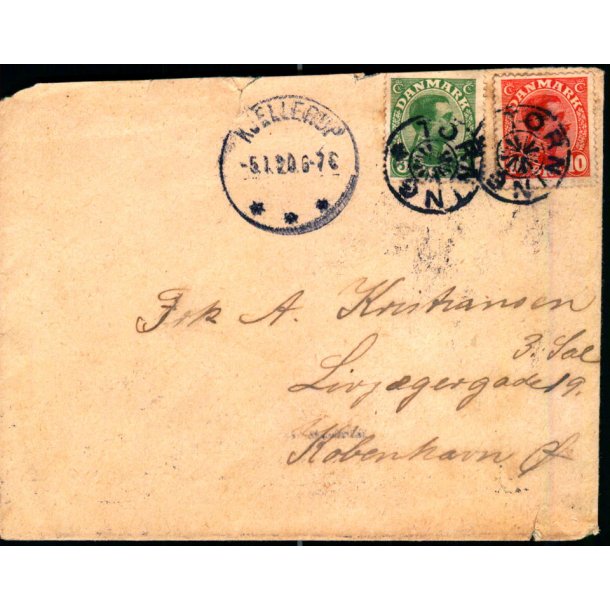 DANMARK
5
DANMARK
10
KJELLERUP
-5.1.20.6-7E
TORNING
TORNING
Frk A. Kristiansen
3. Sal
Livjægergade 19.
København Ø